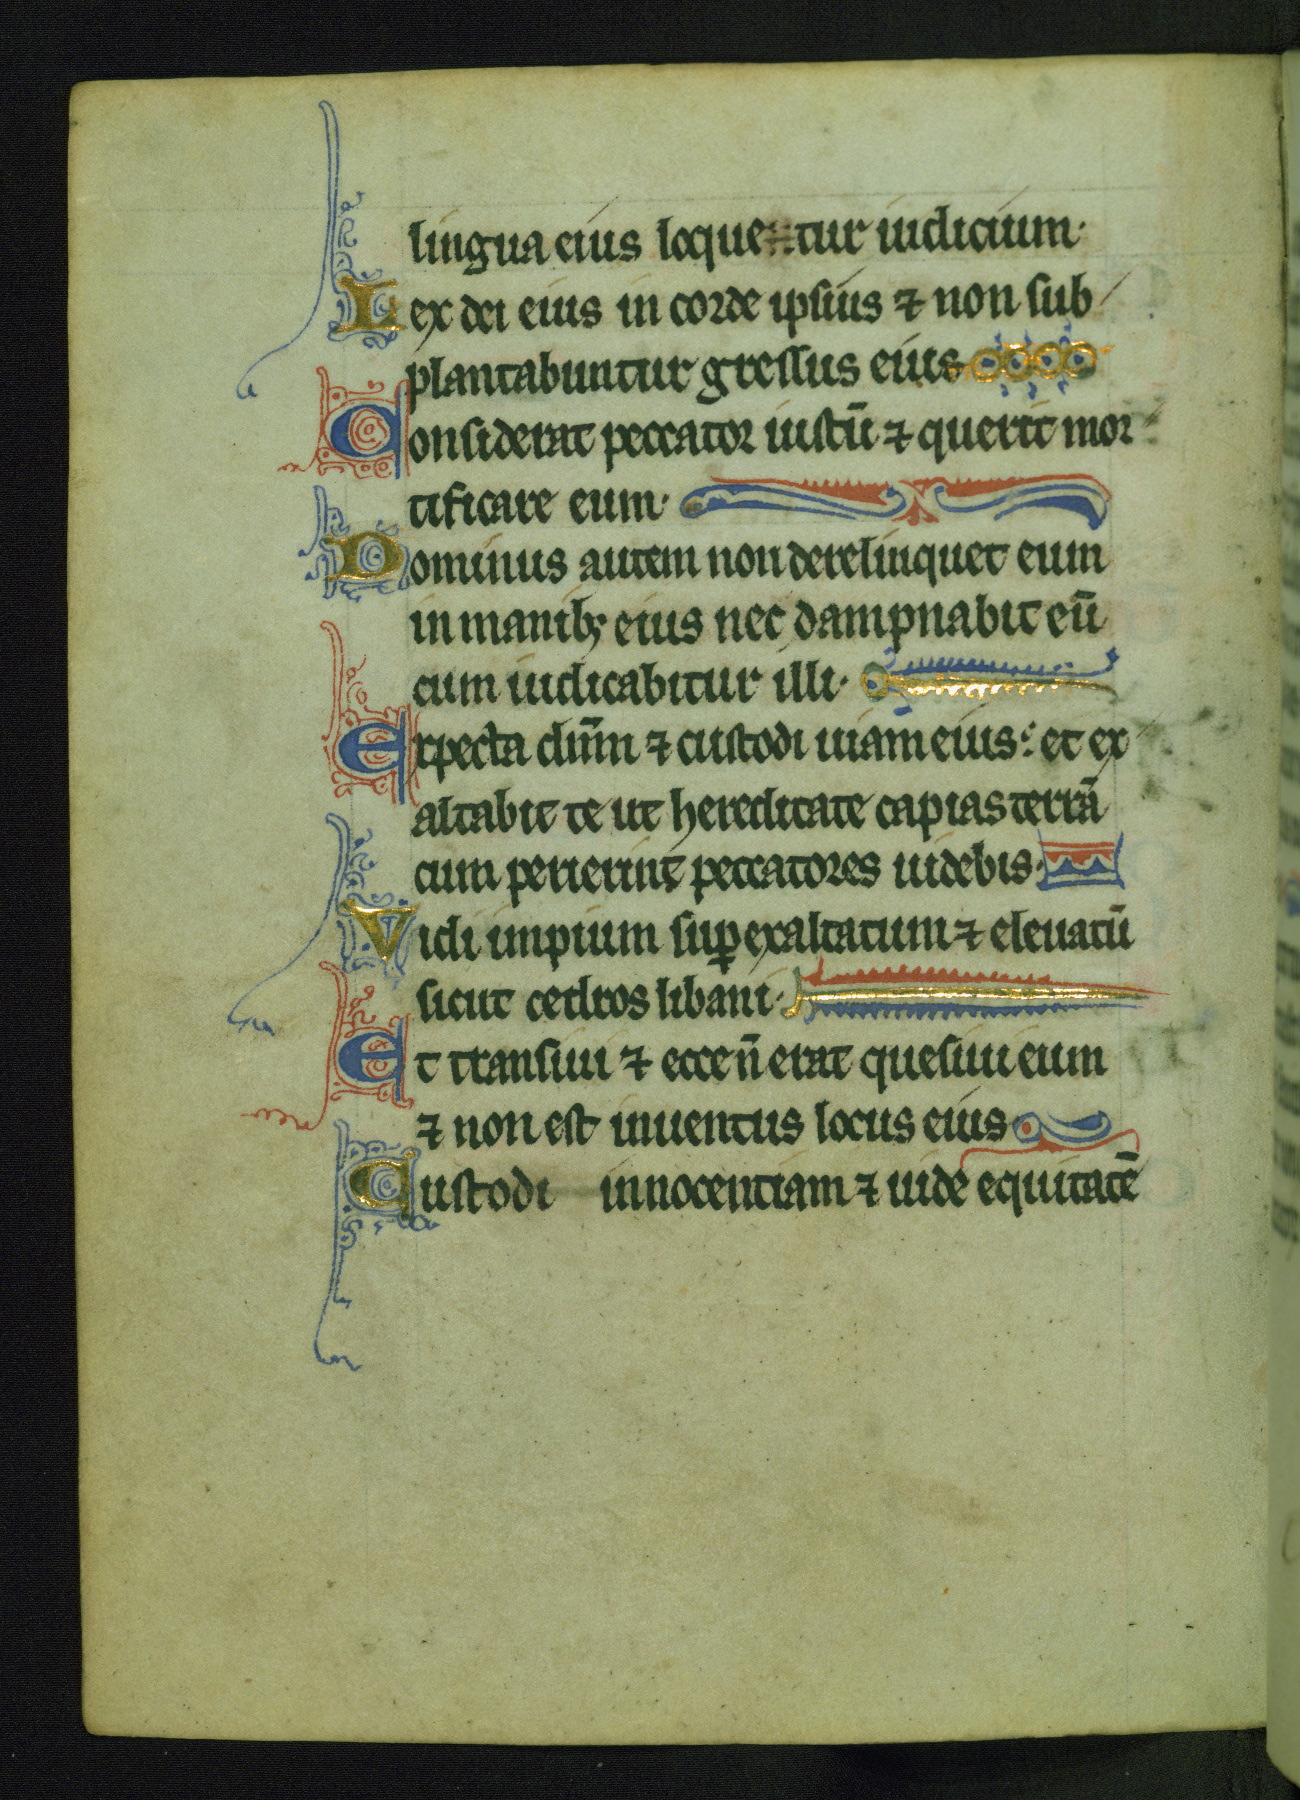 lingua eius loquetur iudicium·
Lex dei eius in corde ipsius ⁊ non sub
plantabuntur gressus eius
Considerat peccator iustū ⁊ querit mor
tificare eum·
Dominus autem non derelinquet eum
in manibꝫ eius nec dampnabit eū
cum iudicabitur illi·
Expecta dn̄m ⁊ custodi uiam eius: et ex
altabit te ut hereditate capias terrā
cum perierint peccatores uidebis·
Vidi impium suꝑexaltatum ⁊ eleuatū
sicut cedros libani·
Et transiui ⁊ ecce n̄ erat quesiui eum
⁊ non est inuentus locus eius
Custodi innocentiam ⁊ uide equitatē